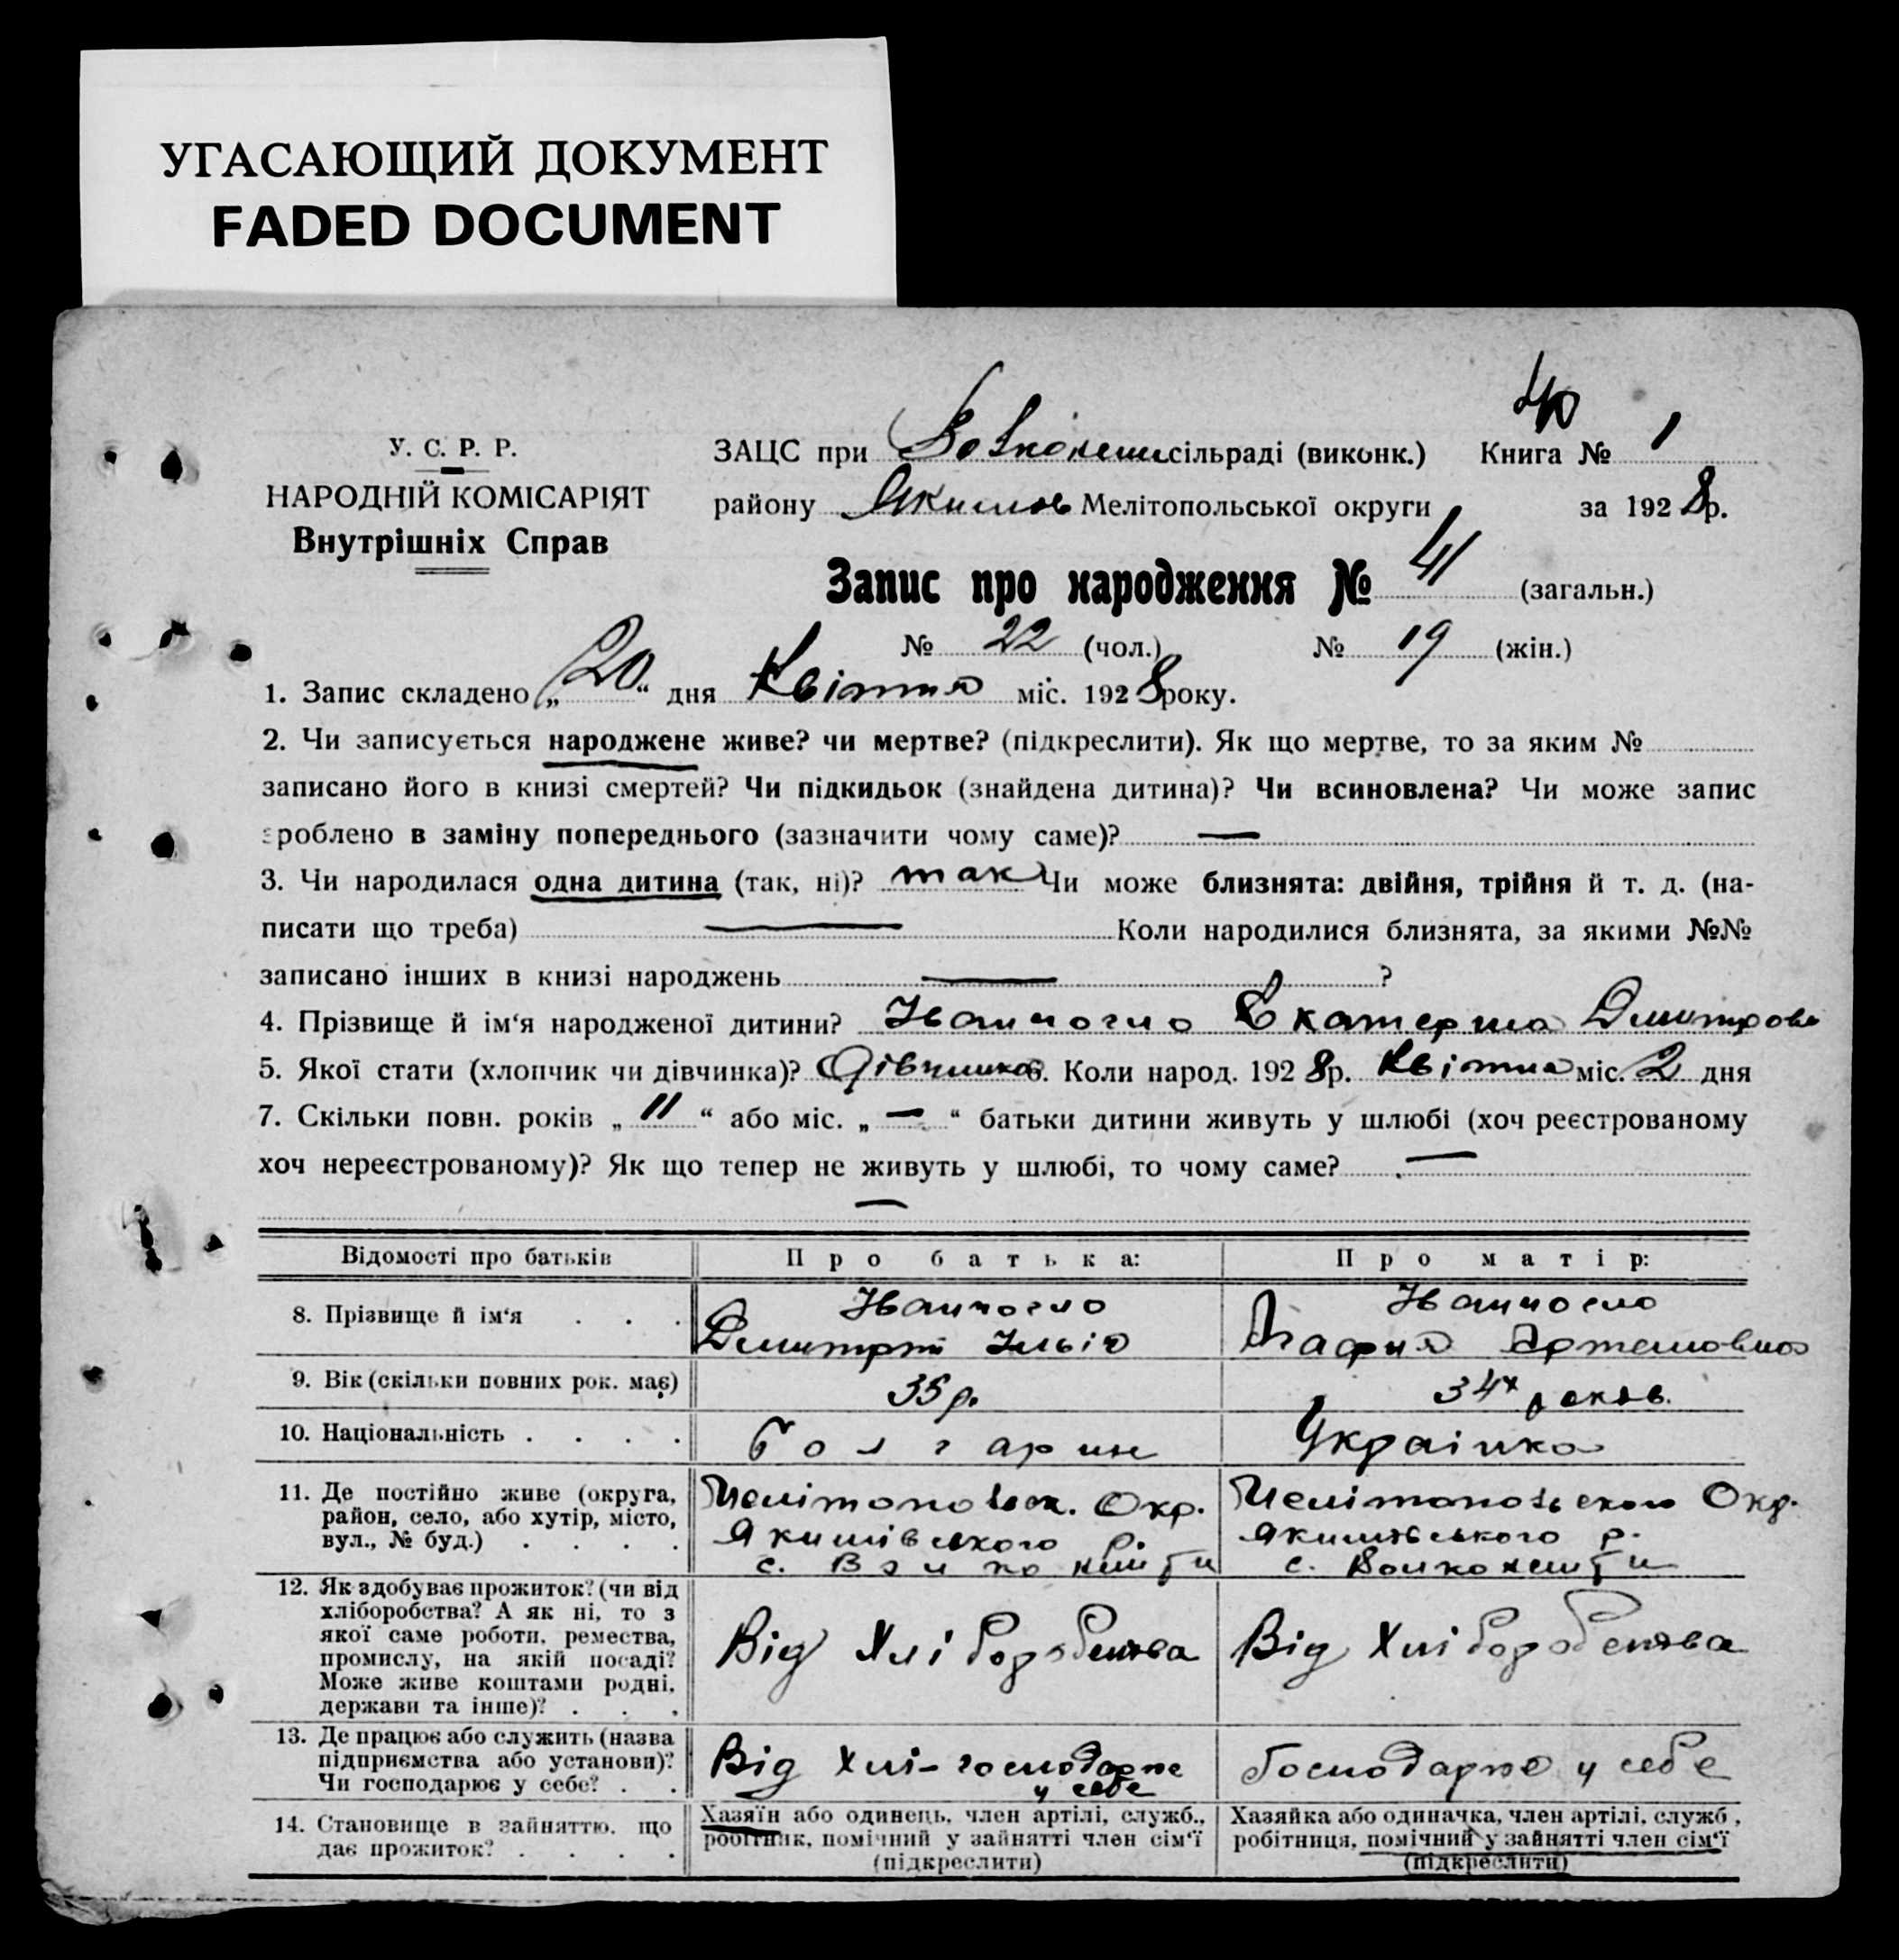 УГАСАЮЩИЙ ДОКУМЕНТ
FADED DOCUMENT
40
У. С. Р. Р.
НАРОДНІЙ КОМІСАРІЯТ
Внутрішніх Справ
ЗАЦС при сільраді (виконк.) Книга № 1
району Якимов Мелітопольської округи за 1928р.
Запис про народження № 41 (загальн.)
№ 22 (чол.) № 19 (жін.)
1. Запис складено „20“ дня Квітня міс. 1928року.
2. Чи записується народжене живе? чи мертве? (підкреслити). Як що мертве, то за яким №
записано його в книзі смертей? Чи підкидьок (знайдена дитина)? Чи всиновлена? Чи може запис
зроблено в заміну попереднього (зазначити чому саме)? —
3. Чи народилася одна дитина (так, ні)? так Чи може близнята: двійня, трійня й т. д. (на-
писати що треба) — Коли народилися близнята, за якими №№
записано інших в книзі народжень — ?
4. Прізвище й ім‘я народженої дитини? Іванчогло Екатерина Дмитров
5. Якої стати (хлопчик чи дівчинка)? Дівчинка 6. Коли народ. 1928р. Квітня міс. 2 дня
7. Скільки повн. років „11“ або міс. „—“ батьки дитини живуть у шлюбі (хоч реєстрованому
хоч нереєстрованому)? Як що тепер не живуть у шлюбі, то чому саме? —
—
Відомості про батьків Про батька: Про матір:
8. Прізвище й ім‘я . . . Іванчогло Іванчогло
Дмитрій Ілья Агафия Артемовна
9. Вік (скільки повних рок. має) 35 р. 34х роков.
10. Національність . . . . Болгарин Українка
11. Де постійно живе (округа, район, село, або хутір, місто, вул., № буд.) . . . .
Мелітопольск. Окр.
Якимівського р.
с. Волконешти
Мелітопольского Окр.
Якимівського р.
с. Волконешти
12. Як здобуває прожиток? (чи від
хліборобства? А як ні, то з
якої саме роботи, ремества,
промислу, на якій посаді?
Може живе коштами родні,
держави та інше)? . . .
Від Хліборобства
Від Хліборобства
13. Де працює або служить (назва
підприємства або установи)?
Чи господарює у себе? . .
Від Хлі-господарює
у себе
Господарює у себе
14. Становище в зайняттю, що
дає прожиток? . . . .
Хазяїн або одинець, член артілі, служб.,
робітник, помічний у зайнятті член сім‘ї
(підкреслити)
Хазяйка або одиначка, член артілі, служб.,
робітниця, помічний у зайнятті член сім‘ї
(підкреслити)